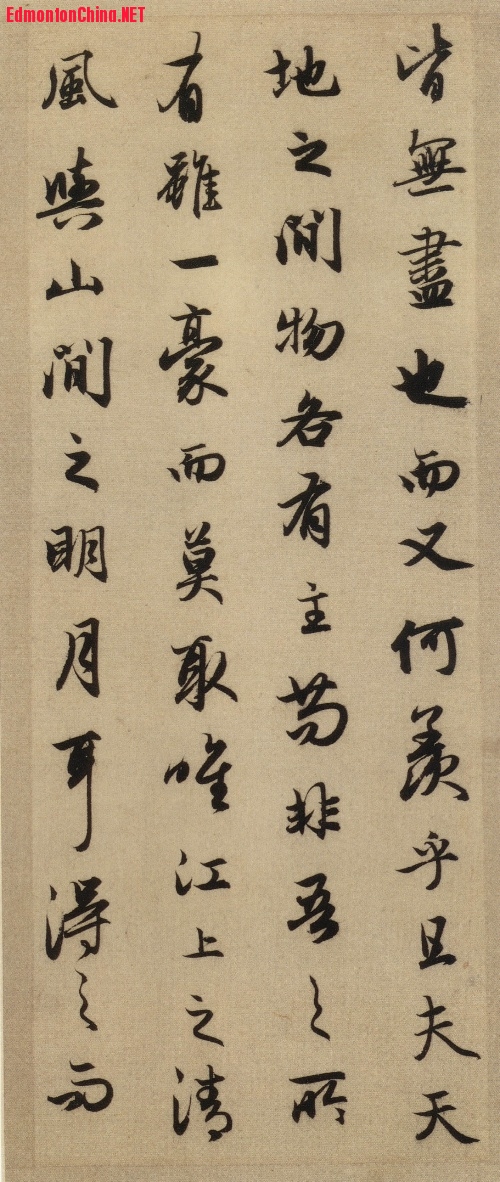 EdmontonChina.NET
皆無盡也而又何羨乎且夫天
地之間物各有主苟非吾之所
有雖一豪而莫取唯江上之清
風與山間之明月耳得之而